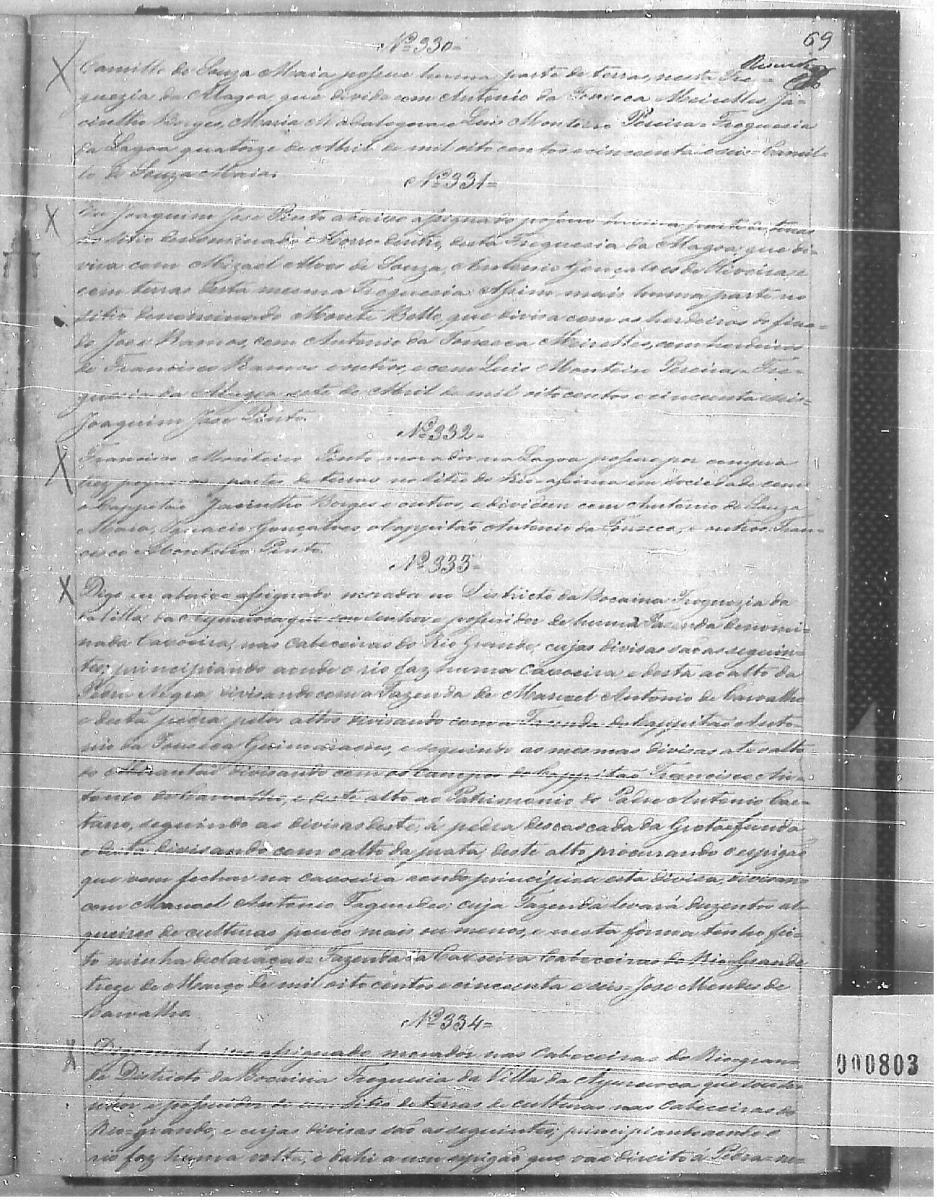 69
Nº 330=
Camillo de Souza Maia possue huma parte de terras, nesta Fre-
guezia da Alagoa que divide com Antonio da Fonseca Meirelles, Ja-
cintho Borges, Maria Magdalena e Luis Monteiro Pereira = Freguesia
da Lagoa quatorze de Abril de mil oito centos e cincoenta e seis = Camil-
lo de Souza Maia.
Nº 331=
Eu Joaquim Jose Pinto abaixo assignado possuo huma parte de terras
no sitio denominado desta Freguesia da Alagoa, que di-
visa com Mizael Alves de Souza, Antonio Gonçalves de Oliveira, e
com terras desta mesma Freguesia. Assim mais huma parte no
sitio denominado Monte Bello, que divisa com os herdeiros do fina-
do José Ramos, com Antonio da Fonseca Meirelles, com herdeiros
de Francisco Ramos e outros, e com Luis Monteiro Pereira = Fre-
guesia da Alagoa sete de Abril de mil oitocentos e cincoenta e seis =
Joaquim Jose Pinto.
Nº 332=
Francisco Monteiro Pinto morador na Lagoa possue por compra
partes de terras no sitio do em sociedade com
o Cappitão Jacintho Borges e outros, e dividem com Antonio de Souza
Ignacio Gonçalves o Cappitão Antonio da Fonseca, e outros. Fran-
cisco Monteiro Pinto.
Nº 333=
Digo eu abaixo assignado morador no Districto da Bocaina Freguezia da
Villa da Ayuruoca que sou senhor e possuidor de huma Fazenda denomi-
nada Caxoeira, nas cabeceiras do Rio Grande, cujas divisas são as seguin-
tes; principiando aonde o rio faz huma caxoeira e desta ao alto da
Pedra Negra divisando com a Fazenda de Manoel Antonio de Carvalho
e desta pedra pelos altos divisando com a Fazenda do Cappitão Anto-
nio da Fonseca Guimaraens, e seguindo as mesmas divisas até o alto
do divisando com os campos do Cappitão Francisco An-
tonio de Carvalho, e deste alto ao Patrimonio do Padre Antonio Cae-
tano, seguindo as divisas deste, á pedra descascada da Grota funda
e desta divisando com o alto da prata, deste alto procurando o espigão
que vem fechar na caxoeira aonde principiou esta divisa, divisando
com Manoel Antonio Fagundes; cuja Fazenda levará duzentos al-
queires de culturas pouco mais ou menos, e nesta forma tenho fei-
to minha declaração = Fazenda da Caxoeira Cabeceiras do Rio Grande
treze de Março de mil oito centos e cincoenta e seis = Jose Mendes de
Carvalho
Nº 334=
Digo eu abaixo assignado morador nas Cabeceiras do Rio gran-
de Districto da Bocaina Freguesia da Villa da Ayuruoca que sou se-
nhor e possuidor de um Sitio de terras de culturas nas Cabeceiras do
Rio-grande, e cujas divisas são as seguintes; principiando aonde o
rio faz huma volta, e dahi a um espigão que vae direito á Pedra-ne-
000803